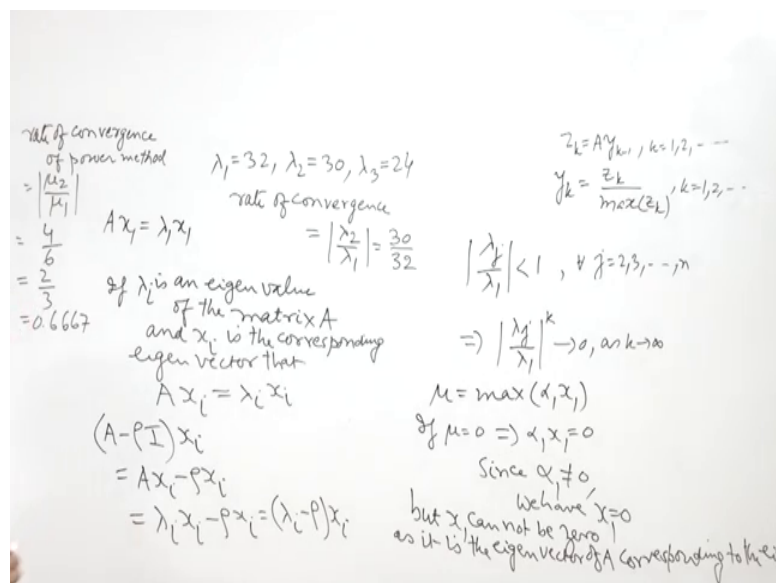 rate of convergence
of power method
= |μ₂/μ₁|
= 4/6
= 2/3
=0.6667
λ₁=32, λ₂=30, λ₃=24
rate of convergence
= |λ₂/λ₁| = 30/32
Ax₁=λ₁x₁
If λᵢ is an eigen value
of the matrix A
and xᵢ is the corresponding
eigen vector that
Axᵢ=λᵢxᵢ
(A-ρI)xᵢ
= Axᵢ-ρxᵢ
= λᵢxᵢ-ρxᵢ=(λᵢ-ρ)xᵢ
zₖ=Ayₖ₋₁, k=1,2,---
yₖ = zₖ/max(zₖ), k=1,2,--
|λⱼ/λ₁|<1, ∀ j=2,3,---,n
=> |λⱼ/λ₁|ᵏ→0, as k→∞
μ=max(α₁x₁)
If μ=0 => α₁x₁=0
Since α₁≠0,
we have x₁=0
but x₁ cannot be zero
as it is the eigen vector of A corresponding to the